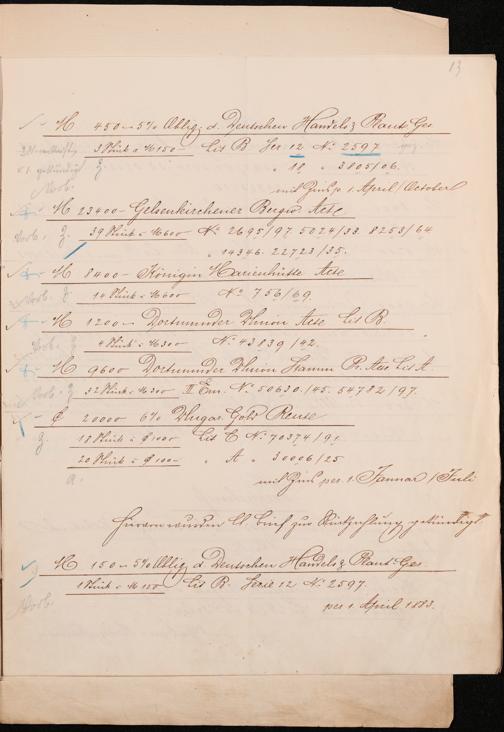 13
M 450 – 5% Oblig. d. Deutschen Handels & Plant. Ges
3 Stück a M 150 – Lit B Ser 12 No 2597
" 11 " 3805/06.
mit Zins p 1. April/October
M 23400 – Gelsenkirchener Bergw. Acte
39 Stück a M 600 No 2695/97 5024/33. 8253/64
" 14346. 22723/35.
Vorb. M 8400 – Königin Marienhütte Acte
14 Stück a M 600 No 756/69.
M 1200 – Dortmunder Union Acte Lit B.
Vorb. 4 Stück a M 300 No 43839/42.
M 9600 Dortmunder Union Stamm Pr. Act Lit A
Vorb. 32 Stück a M 300 II Em. No 50630/45. 54782/97.
20000 6% Ungar. Gold Rente
Stück a 1000 Lit C No 70374/91
20 Stück a 100 – " A " 30006/25
mit Zins per 1 Januar/Juli
Hiervon wurden lt Brief zur Rückzahlung gekündigt
M 150 – 5% Oblig d Deutschen Handels & Plant. Ges
1 Stück a M 150 Lit B. Serie 12 No 2597.
Vorb.
per 1 April 1883.